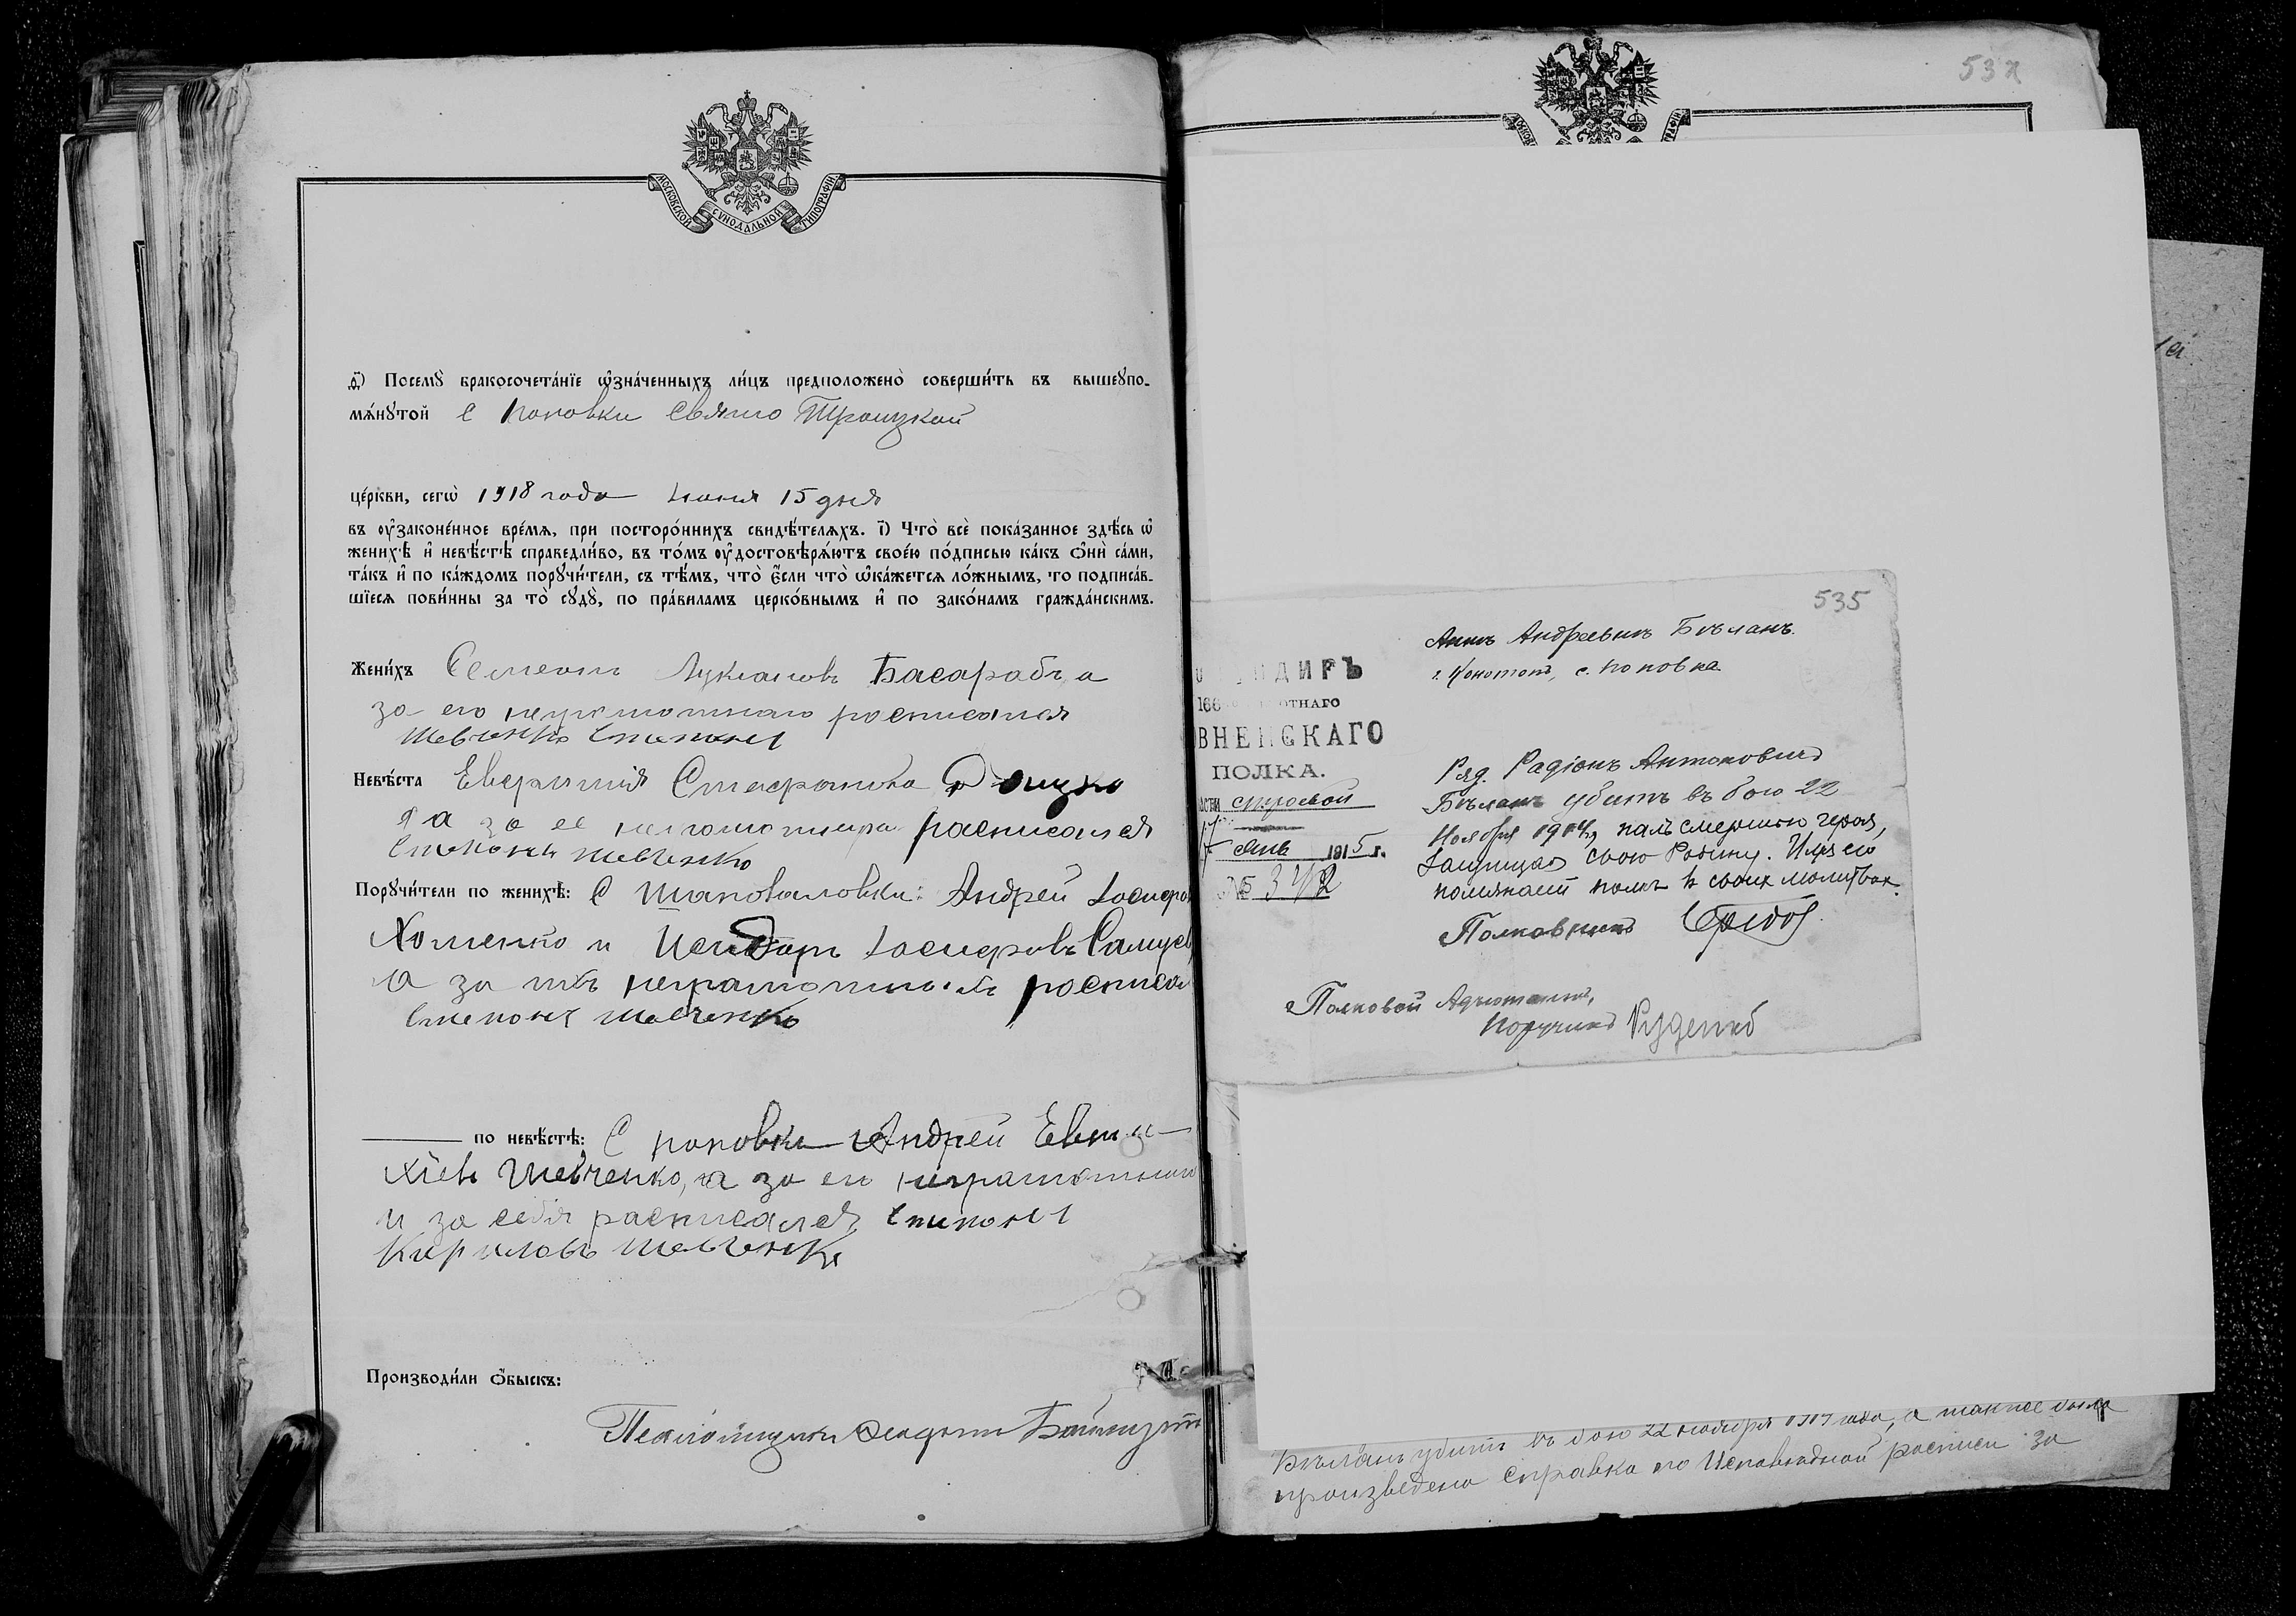 МОСКОВСКОЙ СУНОДАЛЬНОЙ ТИПОГРАФІИ
д҃і) Посемꙋ̀ бракосочета́нїе ѡ҆зна́ченныхъ ли́цъ предположено̀ соверши́ть въ вышеꙋпо-
мѧ́нꙋтой с Поповки Свято Троицкой
це́ркви, сегѡ̀ 1918 года Іюня 15 дня
въ ѹ҆законе́нное вре́мѧ, при посторо́ннихъ свидѣ́телѧхъ. і҃) Что̀ всѐ пока́занное здѣ́сь ѡ҆
женихѣ̀ и҆ невѣ́стѣ справедли́во, въ то́мъ ѹ҆достовѣрѧ́ютъ свое́ю по́дписью ка́къ ѻ҆нѝ са́ми,
та́къ и҆ по ка́ждомъ порꙋчи́тели, съ тѣ́мъ, что̀ є҆́сли что̀ ѡ҆ка́жетсѧ ло́жнымъ, то подписа́в-
шїесѧ пови́нны за то̀ сꙋдꙋ̀, по пра́виламъ церко́внымъ и҆ по зако́намъ гражда́нскимъ.
Жени́хъ Семеонъ Лукіановъ Басарабъ, а
за его неграмотнаго росписался
Шевченко Степанъ
Невѣ́ста Евфимія Стефанова
а за ее неграмотную расписался
Степанъ Шевченко
Порꙋчи́тели по женихѣ̀: С Шаповаловки: Андрей Іосифов
Хоменко и Исидоръ Іосифовъ
а за ихъ неграмотныхъ росписал
Степанъ Шевченко
по невѣ́стѣ: С Поповки Андрей Евти-
хіевъ Шевченко, а за его неграмотнаго
и за себя расписался Степанъ
Кириловъ Шевченко
Производи́ли ѻ҆́быскъ:
Псаломщикъ
53
535
Аннѣ Андреевнѣ Бѣланъ.
г. Конотопъ, с. Поповка
НДИРЪ
166 ОТНАГО
ВНЕНСКАГО
ПОЛКА.
асти строевой
Янв 1915 г.
№ 342
Ряд. Радіонъ Антоновичъ
Бѣланъ убитъ въ бою 22
Ноября 1914 г, палъ смертью героя,
защищая свою Родину. Имя его
помянает полкъ в своих молитвах.
Полковникъ
Полковой Адъютантъ,
Поручикъ Руденко
Бѣланъ убитъ въ бою 22 ноября 1914 года, а также была
произведена справка по Исповѣдной росписи за